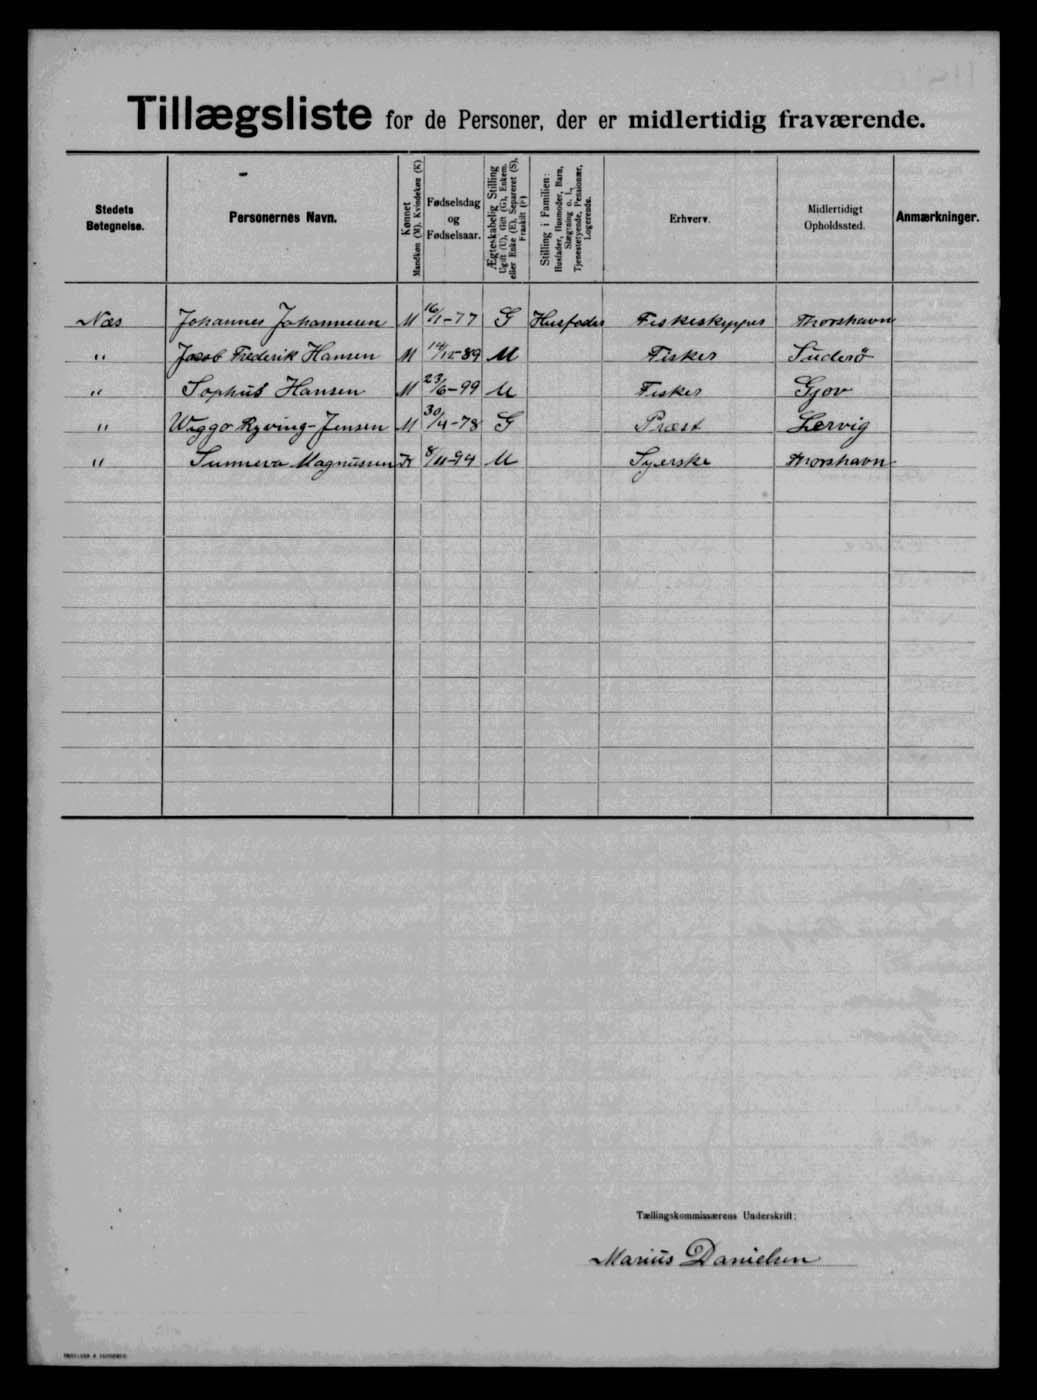 Tillægsliste for de Personer, der er midlertidig fraværende.
Stedets Betegnelse.
Personernes Navn.
Kønnet Mandkøn (M), Kvindekøn (K)
Fødselsdag og Fødselsaar.
Ægteskabelig Stilling Ugift (U), Gift (G), Enkem. eller Enke (E), Separeret (S), Fraskilt (F)
Stilling i Familien: Husfader, Husmoder, Barn, Slægtning o. l., Tjenestetyende, Pensionær, Logerende.
Erhverv.
Midlertidigt Opholdssted.
Anmærkninger.
Næs Johannes Johannesen M 16/1-77 G Husfader Fiskeskypper Thorshavn
" Jacob Frederik Hansen M 14/12-89 U Fisker Suderö
" Sophus Hansen M 23/6-99 U Fisker Gjov
" Wiggo Ryving-Jensen M 30/4-78 G Præst Lervig
" Sunneva Magnussen K 8/11-94 U Syerske Thorshavn
Tællingskommissærens Underskrift:
Marius Danielsen